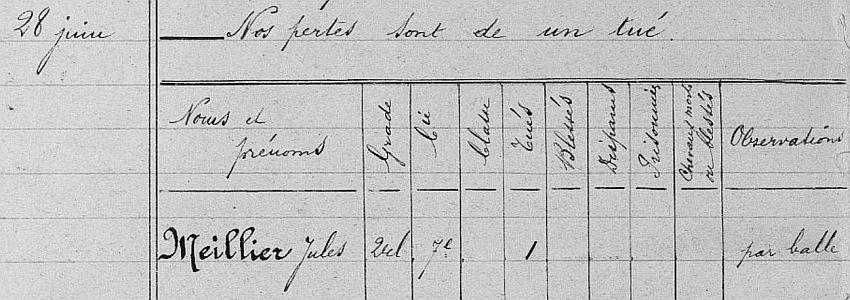 28 juin
Nos pertes sont de un tué.
Noms et prénoms Grade Cie Classe Tués Blessés Disparus Prisonniers Chevaux morts ou blessés Observations
Meillier Jules 2e cl 7e 1 par balle